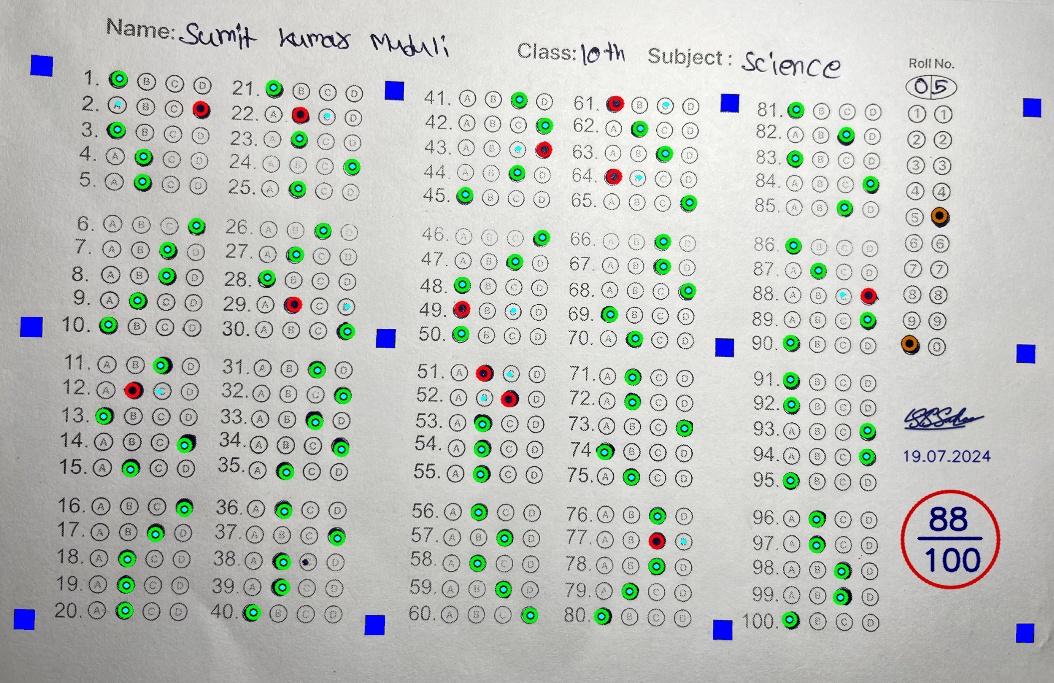 Name: Sumit Kumar Muduli
Class: 10th Subject: Science
Roll No.
05
1. B C D
2. A B C
3. B C D
4. A C D
5. A C D
6. A B C
7. A B D
8. A B D
9. A C D
10. B C D
11. A B D
12. A D
13. B C D
14. A B C
15. A C D
16. A B C
17. A B D
18. A C D
19. A C D
20. A C D
21. B C D
22. A D
23. A C D
24. A B C
25. A C D
26. A B D
27. A C D
28. B C D
29. A C
30. A B C
31. A B D
32. A B C
33. A B D
34. A B C
35. A C D
36. A C D
37. A B C
38. A D
39. A C D
40. B C D
41. A B D
42. A B C
43. A B
44. A B D
45. B C D
46. A B C
47. A B D
48. B C D
49. B D
50. B C D
51. A D
52. A D
53. A C D
54. A C D
55. A C D
56. A C D
57. A B D
58. A C D
59. A B D
60. A B C
61. B D
62. A C D
63. A B D
64. C D
65. A B C
66. A B D
67. A B D
68. A B C
69. B C D
70. A C D
71. A C D
72. A C D
73. A B C
74. B C D
75. A C D
76. A B D
77. A B
78. A B D
79. A C D
80. B C D
81. B C D
82. A B D
83. B C D
84. A B C
85. A B D
86. B C D
87. A C D
88. A B
89. A B C
90. B C D
91. B C D
92. B C D
93. A B C
94. A B C
95. B C D
96. A C D
97. A C D
98. A B D
99. A B D
100. B C D
1 1
2 2
3 3
4 4
5
6 6
7 7
8 8
9 9
0
19.07.2024
88
100